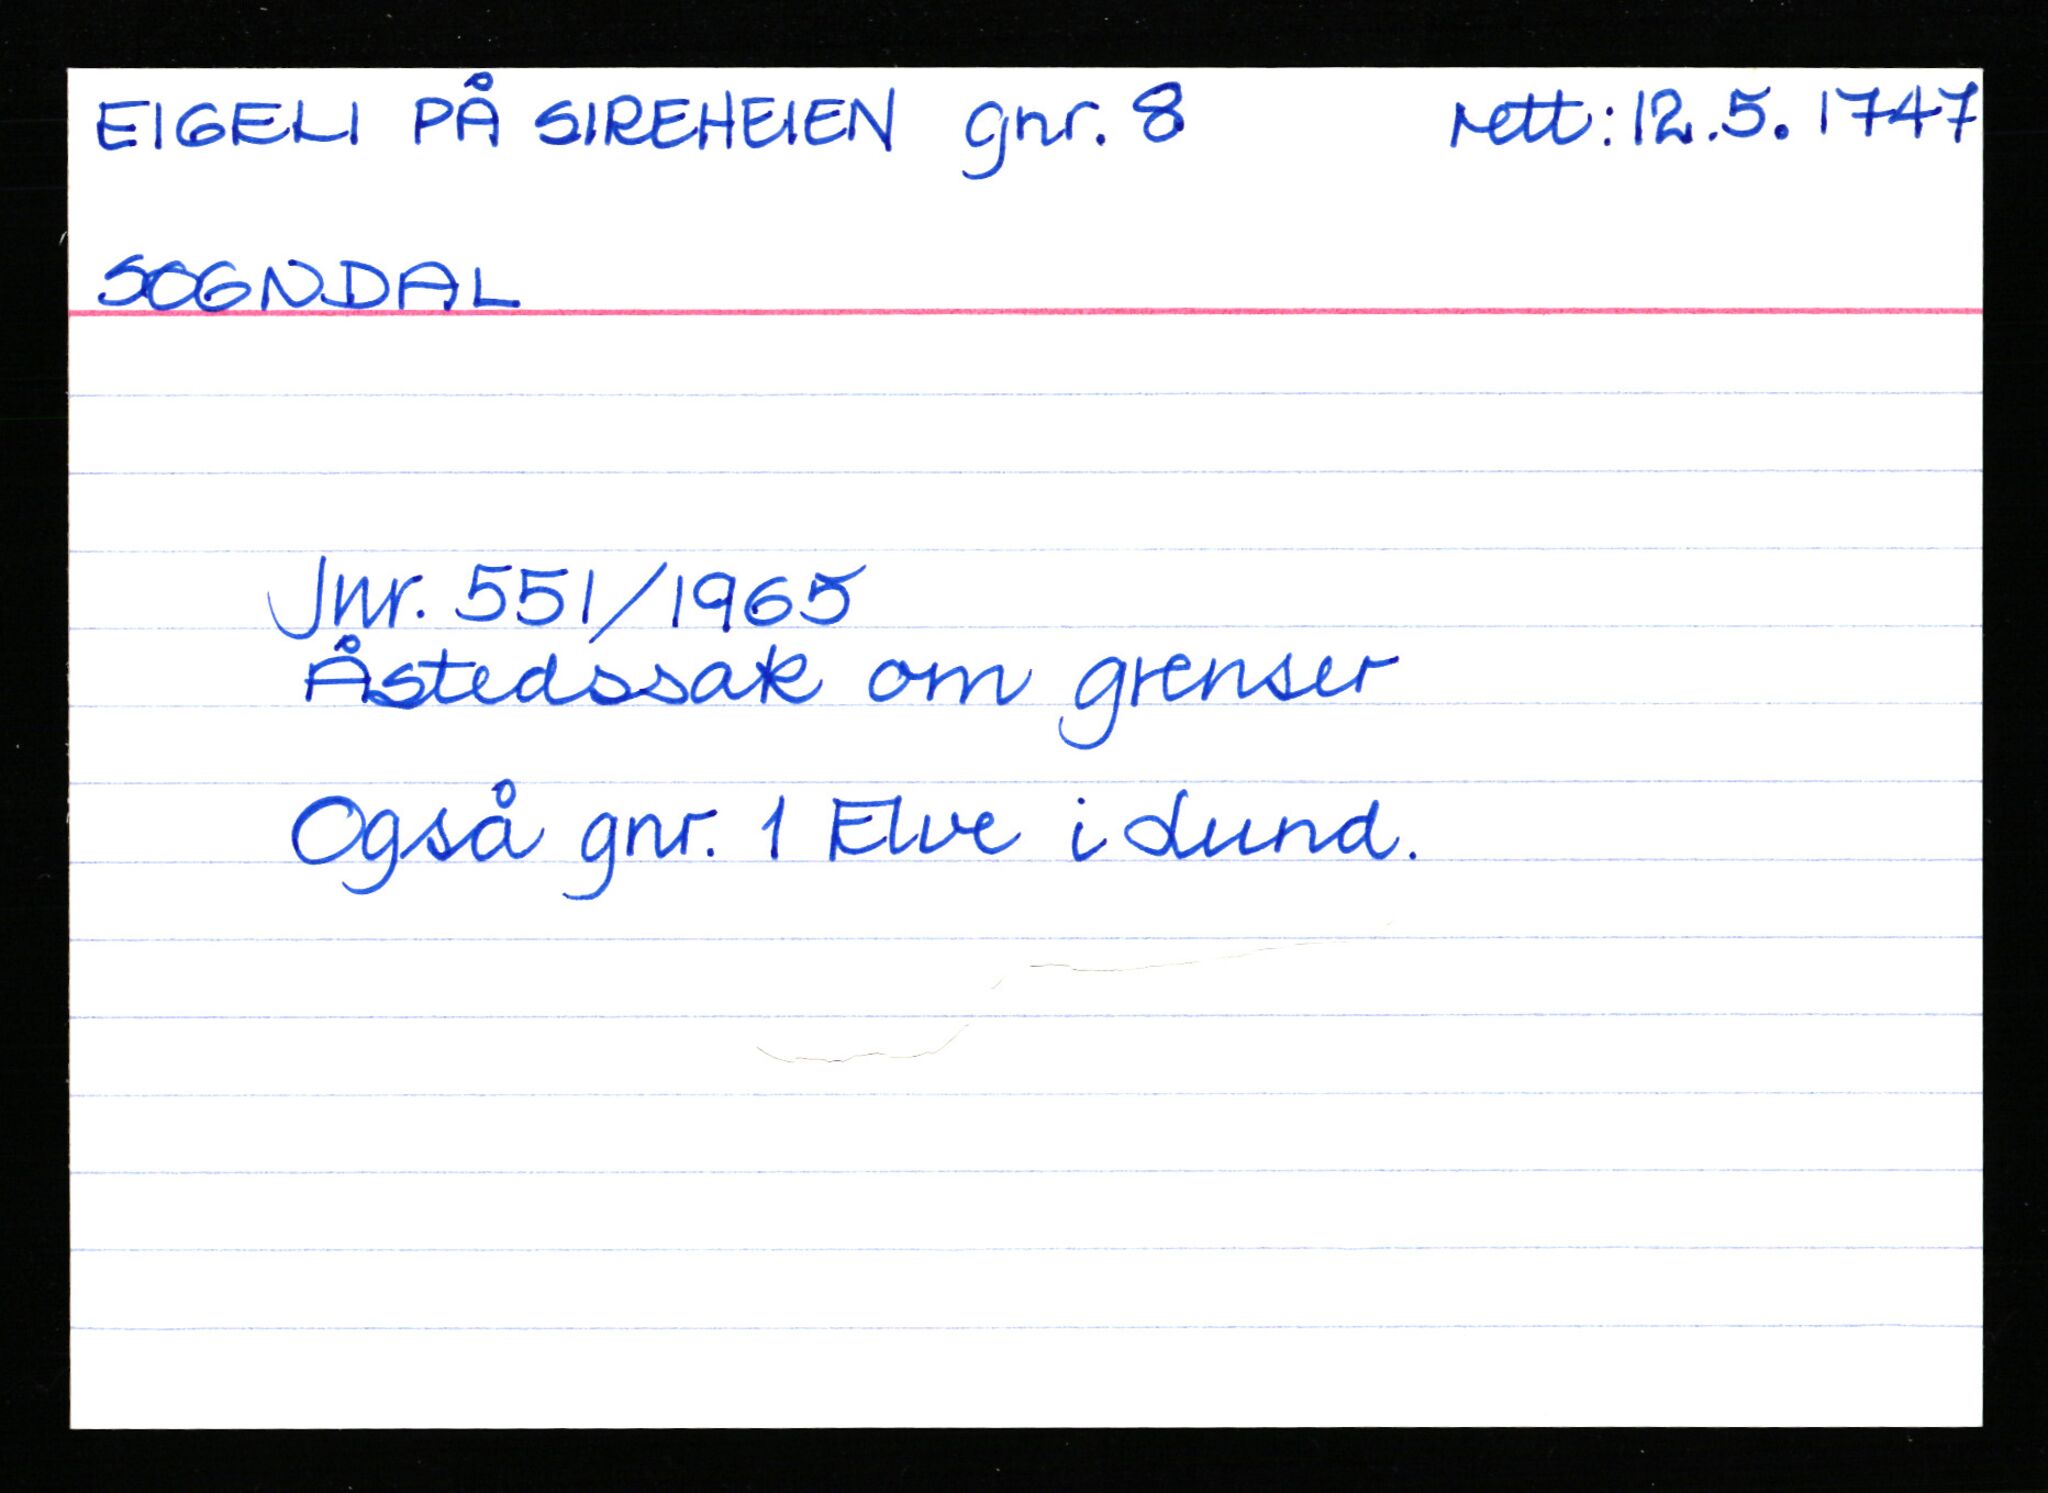 EIGELI PÅ SIREHEIEN gnr. 8 rett: 12.5.1747
SOGNDAL
Jnr. 551/1965
Åstedssak om grenser
Også gnr. 1 Elve i Lund.